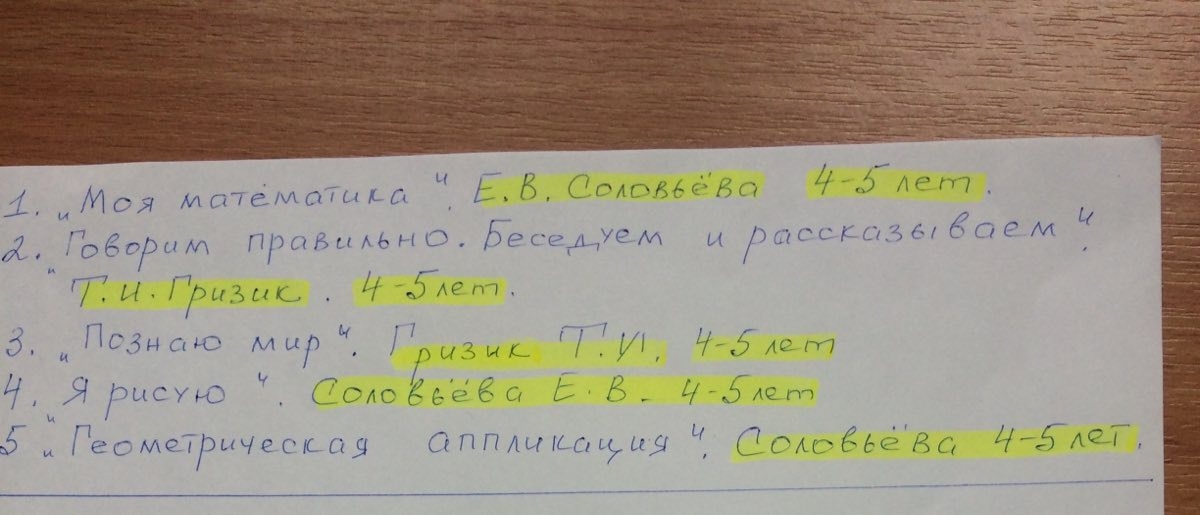 1. „Моя математика“. Е.В. Соловьёва 4-5 лет.
2. „Говорим правильно. Беседуем и рассказываем“.
Т.И. Гризик. 4-5 лет.
3. „Познаю мир“. Гризик Т.И. 4-5 лет
4. „Я рисую“. Соловьёва Е.В. 4-5 лет
5 „Геометрическая аппликация“. Соловьёва 4-5 лет.